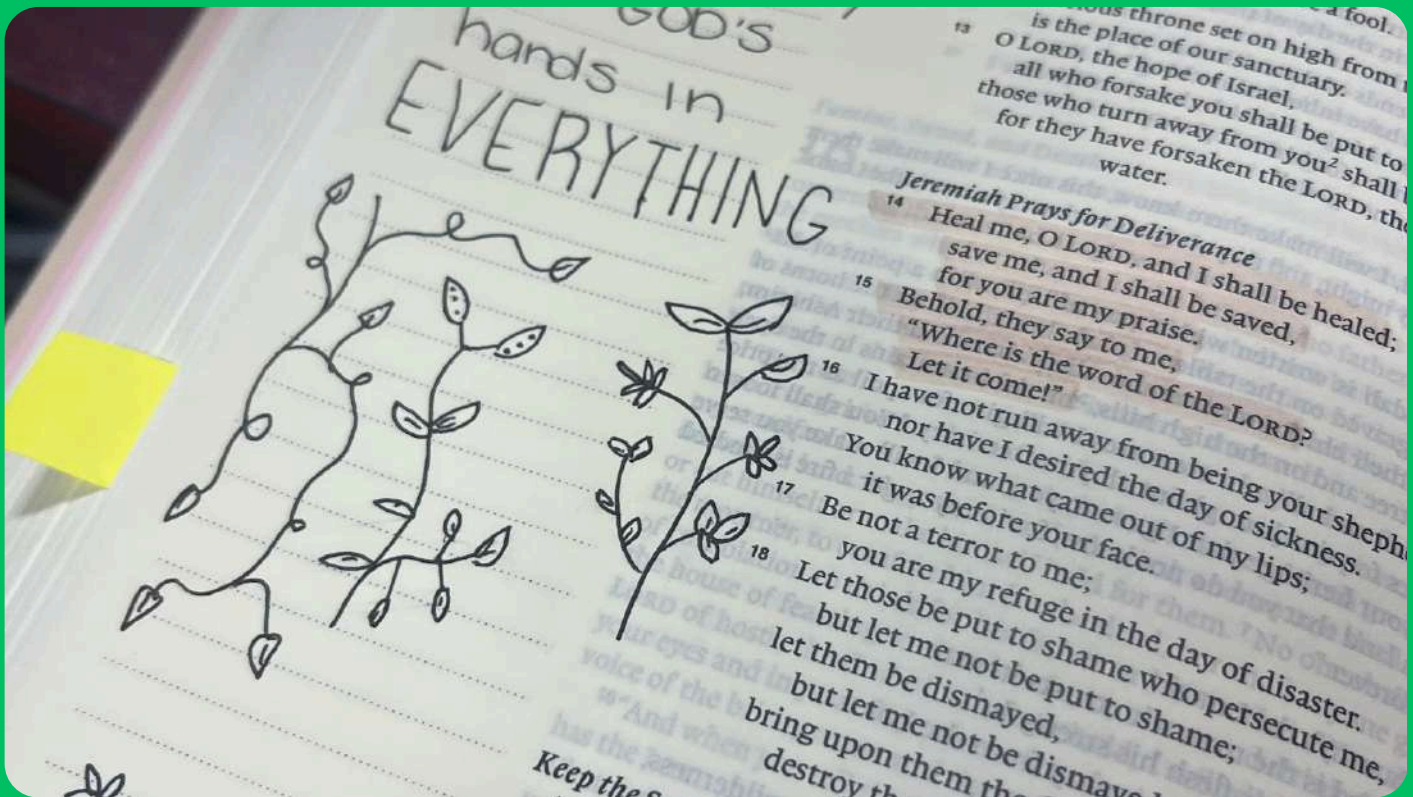 GOD'S
hands in
EVERYTHING
a fool.
throne set on high from
is the place of our sanctuary.
13 O LORD, the hope of Israel,
all who forsake you shall be put to
those who turn away from you² shall
for they have forsaken the LORD, the
water.
Jeremiah Prays for Deliverance
14 Heal me, O LORD, and I shall be healed;
save me, and I shall be saved,
for you are my praise.
15 Behold, they say to me,
“Where is the word of the LORD?
Let it come!”
16 I have not run away from being your sheph
nor have I desired the day of sickness.
You know what came out of my lips;
it was before your face.
17 Be not a terror to me;
you are my refuge in the day of disaster.
18 Let those be put to shame who persecute me,
but let me not be put to shame;
let them be dismayed,
but let me not be dismayed
bring upon them the
destroy th
Keep the S